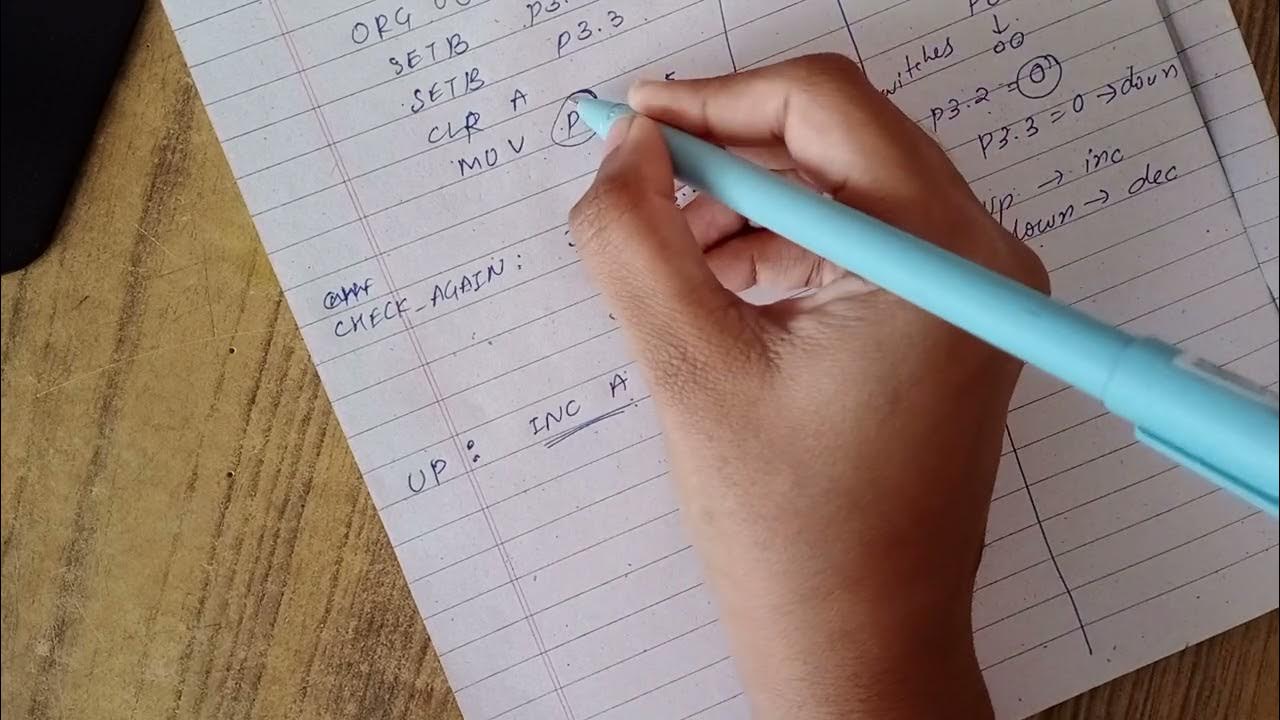 ORG
SETB P3.
SETB P3.3
CLR A
MOV P
CHECK_AGAIN:
UP: INC A
witches 00
P3.2 = 0
P3.3 = 0 → down
up → inc
down → dec